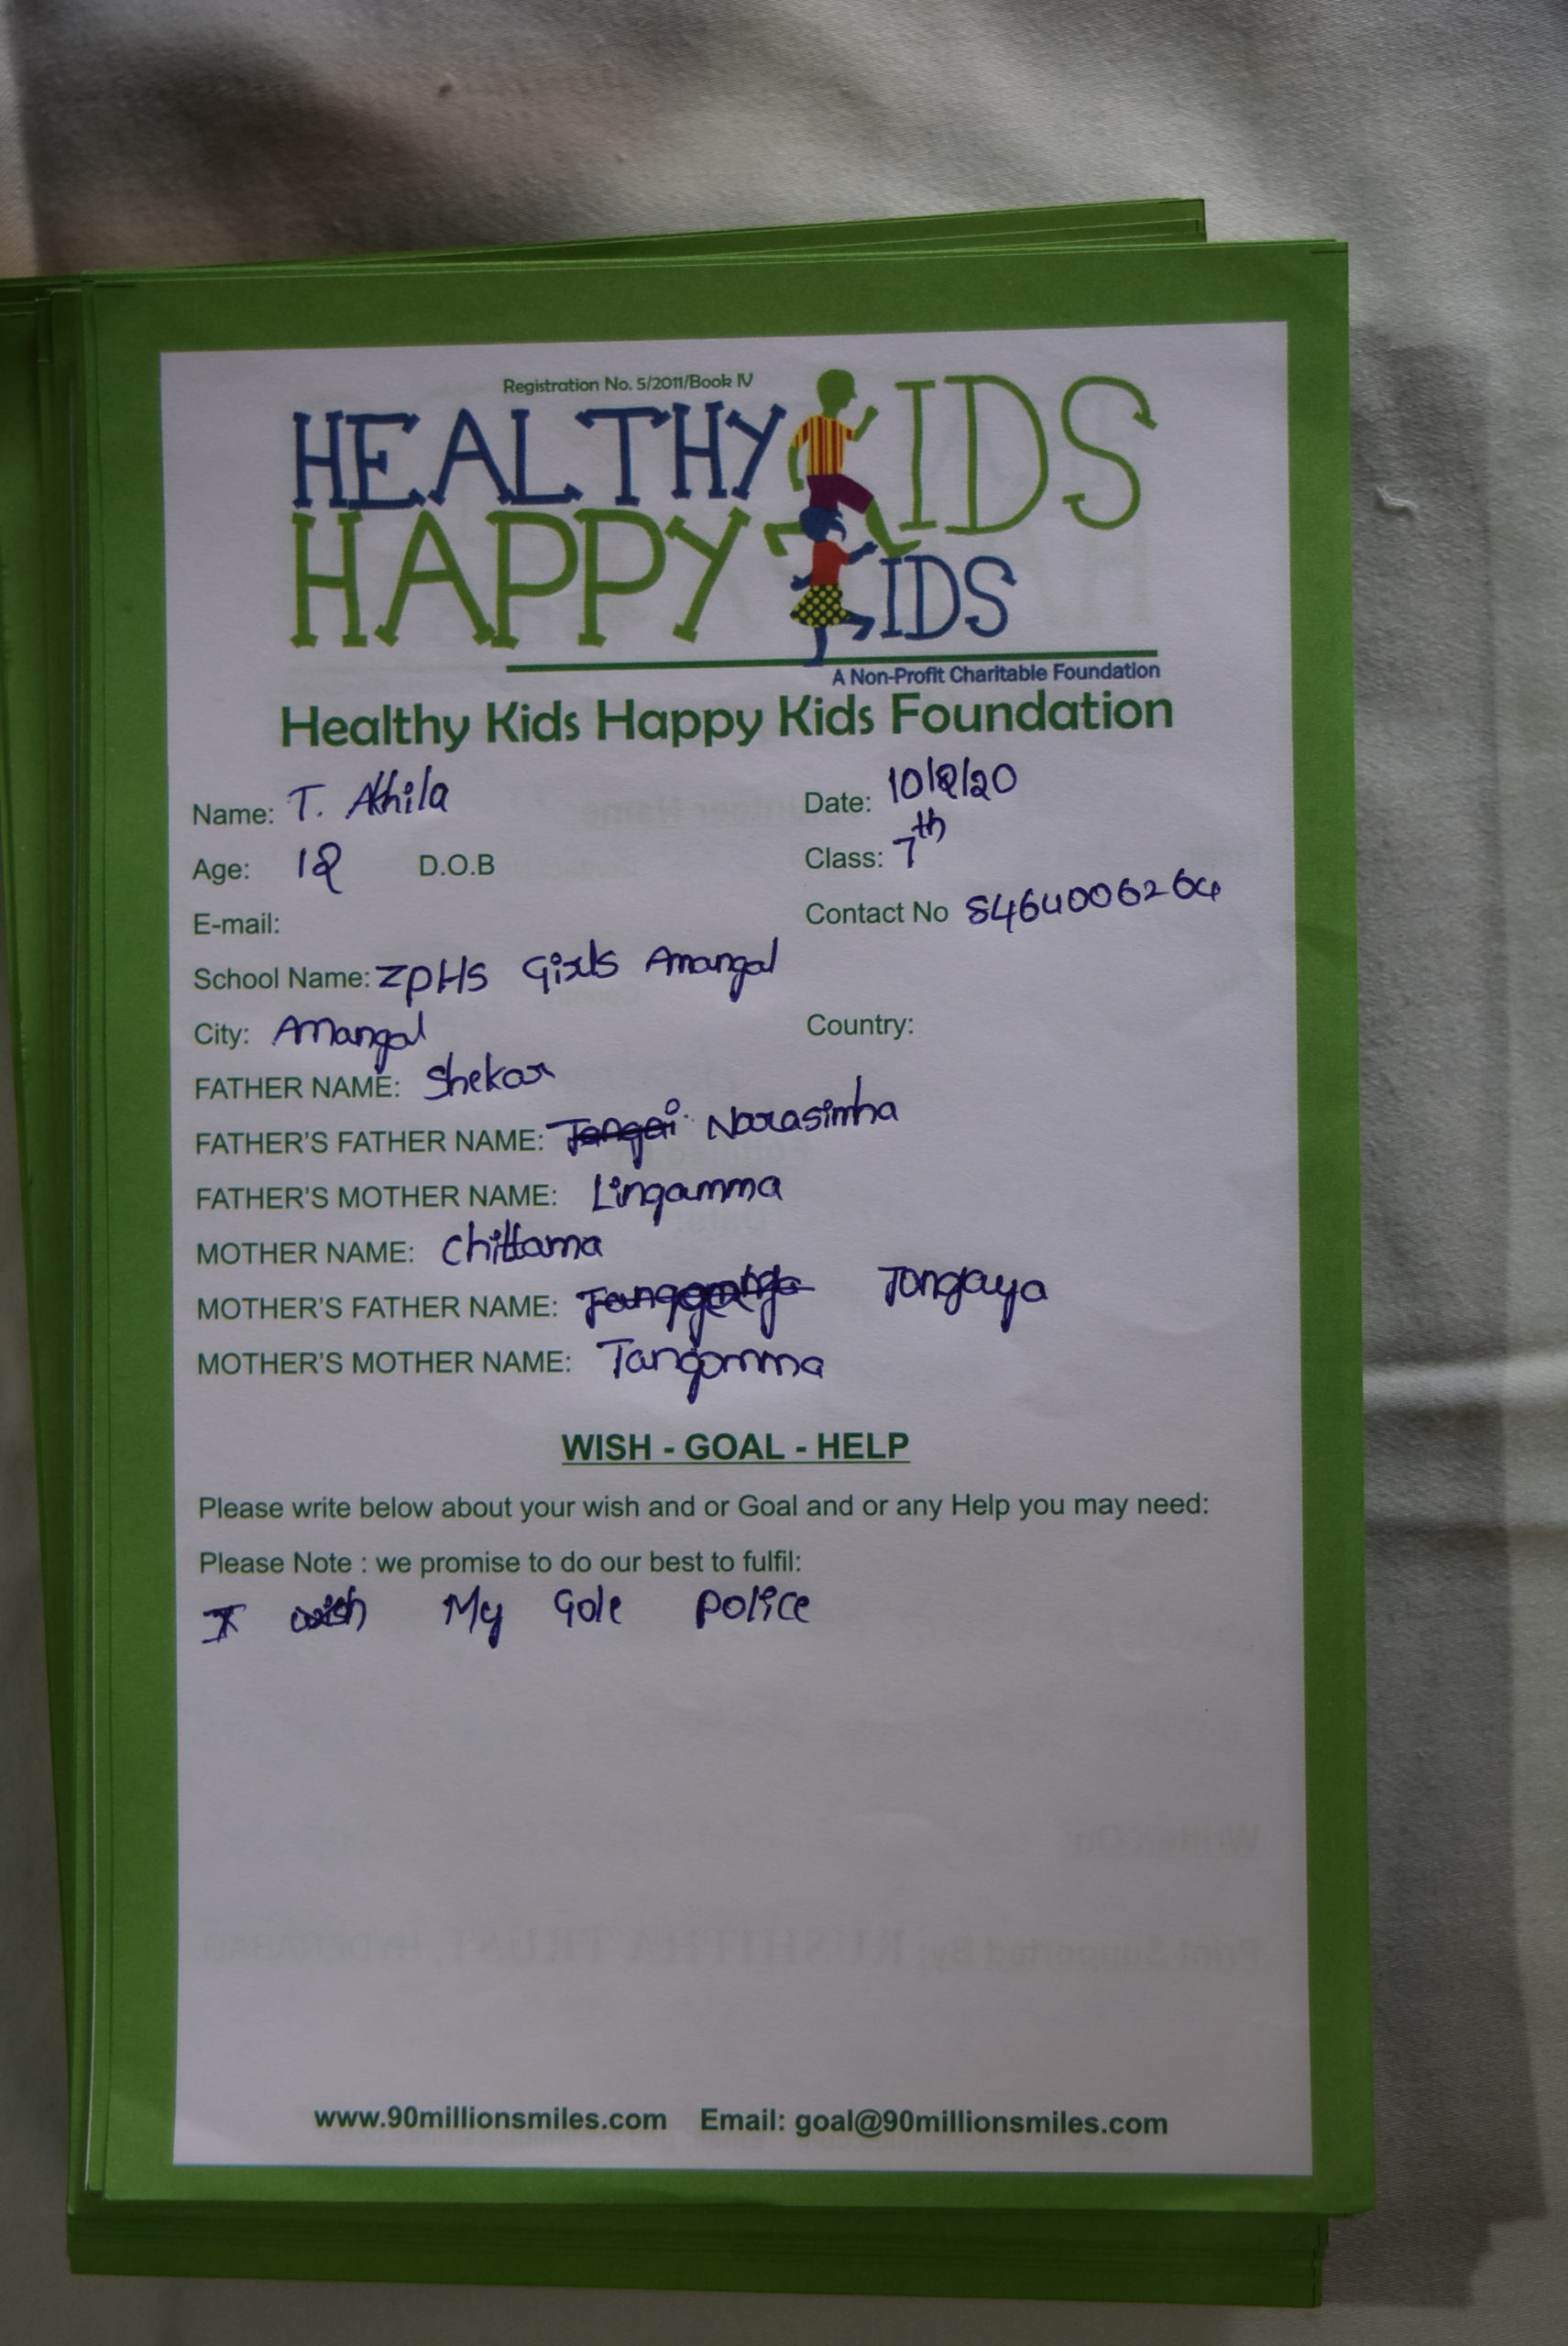 Registration No. 5/2011/Book IV
HEALTHY KIDS
HAPPY KIDS
A Non-Profit Charitable Foundation
Healthy Kids Happy Kids Foundation
Name: T. Akhila Date: 10/2/20
Age: 12 D.O.B Class: 7th
E-mail: Contact No 8464006264
School Name: ZPHS Girls Amangal
City: Amangal Country:
FATHER NAME: Shekar
FATHER'S FATHER NAME: Narasimha
FATHER'S MOTHER NAME: Lingamma
MOTHER NAME: Chittama
MOTHER'S FATHER NAME: Tangaya
MOTHER'S MOTHER NAME: Tangamma
WISH - GOAL - HELP
Please write below about your wish and or Goal and or any Help you may need:
Please Note : we promise to do our best to fulfil:
I wish My Gole Police
www.90millionsmiles.com Email: goal@90millionsmiles.com